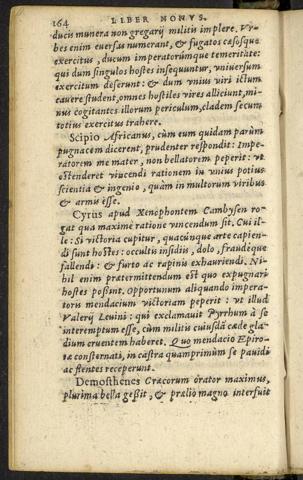 164 LIBER NONVS.
ducis munera non gregarij militis implere. Vr-
bes enim euersas numerant, & fugatos cæsosque
exercitus, ducum imperatorúmque temeritate:
qui dum singulos hostes insequuntur, vniuersum
exercitum deserunt: & dum vnius viri ictum
cauere student, omnes hostiles vires alliciunt, mi-
nus cogitantes illorum periculum, cladem secum
totius exercitus trahere.
Scipio Africanus, cùm eum quidam parùm
pugnacem dicerent, prudenter respondit: Impe-
ratorem me mater, non bellatorem peperit: vt
ostenderet viucendi rationem in vnius potius
scientia & ingenio, quàm in multorum viribus
& armis esse.
Cyrus apud Xenophontem Cambysen ro-
gat qua maximè ratione vincendum sit. Cui il-
le: Si victoria cupitur, quacúnque arte capien-
di sunt hostes: occultis insidiis, dolo, fraudéque
fallendi: & furto ac rapinis exhauriendi. Ni-
hil enim prætermittendum est quo expugnari
hostes poßint. Opportunum aliquando impera-
toris mendacium victoriam peperit: vt illud
Valerij Leuini: qui exclamauit Pyrrhum à se
interemptum esse, cùm militis cuiusdã cæde gla-
dium cruentem haberet. Quo mendacio Epiro-
tæ consternati, in castra quamprimùm se pauidi
ac flentes receperunt.
Demosthenes Græcorum orator maximus,
plurima bella geßit, & prælio magno interfuit